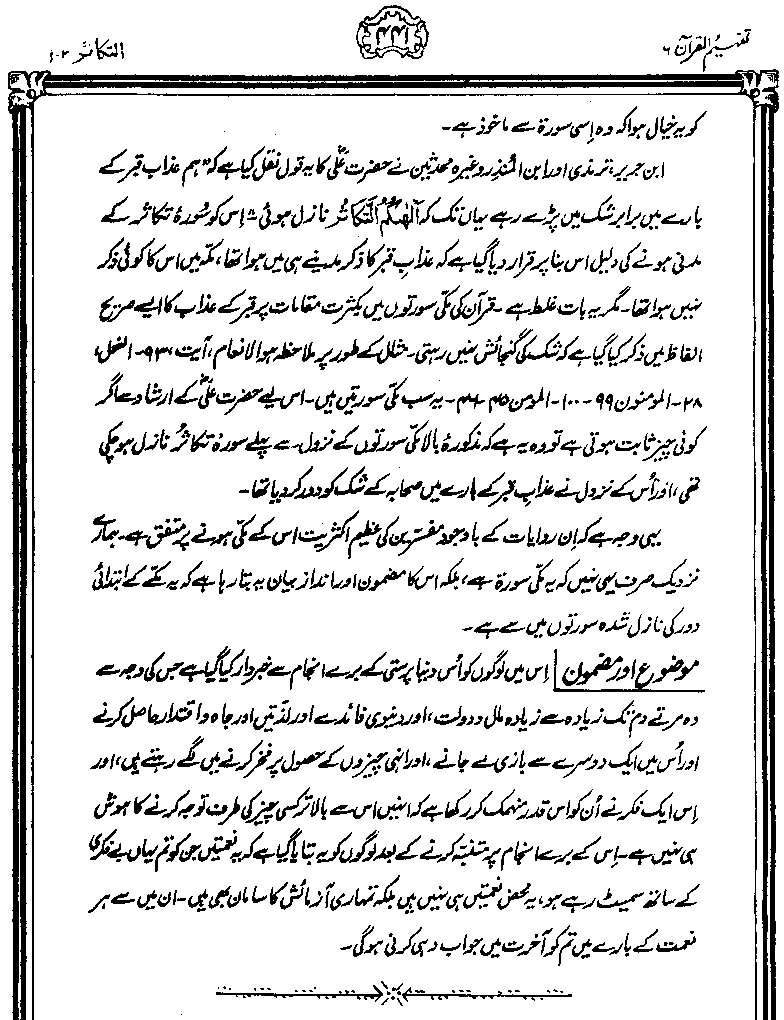 تفہیم القرآن ۶
۴۴۱
التکاثر ۱۰۲
کو یہ خیال ہوا کہ وہ اِسی سورۃ سے ماخوذ ہے۔
ابن جریر، ترمذی اور ابن المُنذِر وغیرہ محدثین نے حضرت علیؓ کا یہ قول نقل کیا ہے کہ ”ہم عذابِ قبر کے
بارے میں برابر شک میں پڑے رہے یہاں تک کہ اَلْهٰىكُمُ التَّكَاثُرُ نازل ہوئی“۔ اِس کو سُورۂ تکاثر کے
مدنی ہونے کی دلیل اس بنا پر قرار دیا گیا ہے کہ عذابِ قبر کا ذکر مدینے ہی میں ہوا تھا، مکہ میں اس کا کوئی ذکر
نہیں ہوا تھا۔ مگر یہ بات غلط ہے۔ قرآن کی مکّی سورتوں میں بکثرت مقامات پر قبر کے عذاب کا ایسے صریح
الفاظ میں ذکر کیا گیا ہے کہ شک کی گنجائش نہیں رہتی۔ مثال کے طور پر ملاحظہ ہو الانعام، آیت، ۹۳۔ النحل،
۲۸۔ المومنون ۹۹-۱۰۰۔ المومن ۴۵-۴۶۔ یہ سب مکّی سورتیں ہیں۔ اس لیے حضرت علیؓ کے ارشاد سے اگر
کوئی چیز ثابت ہوتی ہے تو وہ یہ ہے کہ مذکورۂ بالا مکّی سورتوں کے نزول سے پہلے سورۂ تکاثُر نازل ہو چکی
تھی، اور اُس کے نزول نے عذابِ قبر کے بارے میں صحابہ کے شک کو دور کر دیا تھا۔
یہی وجہ ہے کہ اِن روایات کے باوجود مفسّرین کی عظیم اکثریت اس کے مکّی ہونے پر متفق ہے۔ ہمارے
نزدیک صرف یہی نہیں کہ یہ مکّی سورۃ ہے، بلکہ اس کا مضمون اور انداز بیان یہ بتا رہا ہے کہ یہ مکّے کے ابتدائی
دور کی نازل شدہ سورتوں میں سے ہے۔
موضوع اور مضمون اِس میں لوگوں کو اُس دنیا پرستی کے برے انجام سے خبردار کیا گیا ہے جس کی وجہ سے
وہ مرتے دم تک زیادہ سے زیادہ مال و دولت، اور دنیوی فائدے اور لذّتیں اور جاہ و اقتدار حاصل کرنے
اور اُس میں ایک دوسرے سے بازی لے جانے، اور انہی چیزوں کے حصول پر فخر کرنے میں لگے رہتے ہیں، اور
اِس ایک فکر نے اُن کو اس قدر منہمک کر رکھا ہے کہ انہیں اس سے بالاتر کسی چیز کی طرف توجہ کرنے کا ہوش
ہی نہیں ہے۔ اِس کے برے انجام پر متنبّہ کرنے کے بعد لوگوں کو یہ بتایا گیا ہے کہ یہ نعمتیں جن کو تم یہاں بے فکری
کے ساتھ سمیٹ رہے ہو، یہ محض نعمتیں ہی نہیں ہیں بلکہ تمہاری آزمائش کا سامان بھی ہیں۔ ان میں سے ہر
نعمت کے بارے میں تم کو آخرت میں جواب دہی کرنی ہوگی۔